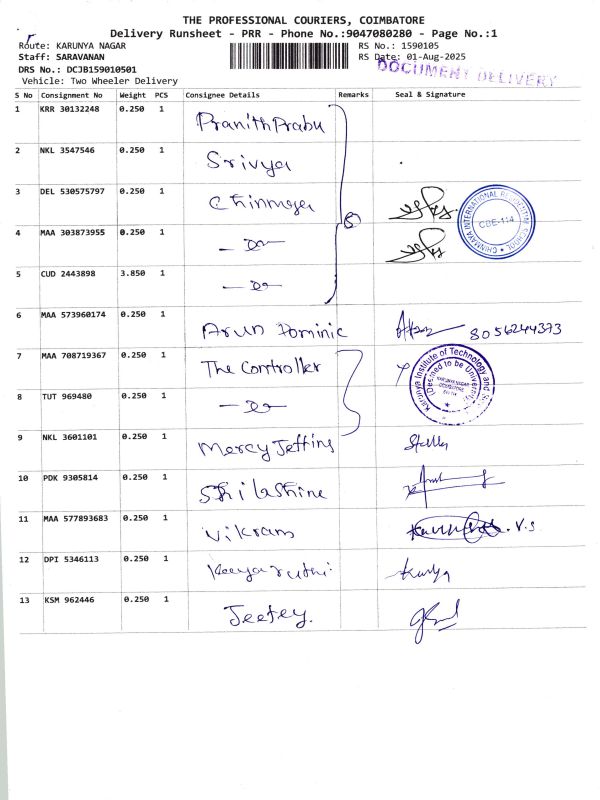 THE PROFESSIONAL COURIERS, COIMBATORE
Delivery Runsheet - PRR - Phone No.:9047080280 - Page No.:1
Route: KARUNYA NAGAR RS No.: 1590105
Staff: SARAVANAN RS Date: 01-Aug-2025
DRS No.: DCJB159010501 DOCUMENT DELIVERY
Vehicle: Two Wheeler Delivery
S No Consignment No Weight PCS Consignee Details Remarks Seal & Signature
1 KRR 30132248 0.250 1 Pranith Prabu
2 NKL 3547546 0.250 1 Srivya
3 DEL 530575797 0.250 1 Chinmaya
CHINMAYA INTERNATIONAL RESIDENTIAL SCHOOL CBE-114
4 MAA 303873955 0.250 1
5 CUD 2443898 3.850 1
6 MAA 573960174 0.250 1 Arun Dominic 8056244373
7 MAA 708719367 0.250 1 The Controller
Karunya Institute of Technology and
(Deemed to be University)
KARUNYA NAGAR
COIMBATORE
8 TUT 969480 0.250 1
9 NKL 3601101 0.250 1 Mercy Jeffins Stella
10 PDK 9305814 0.250 1
11 MAA 577893683 0.250 1 Vikram V.S
12 DPI 5346113 0.250 1
13 KSM 962446 0.250 1